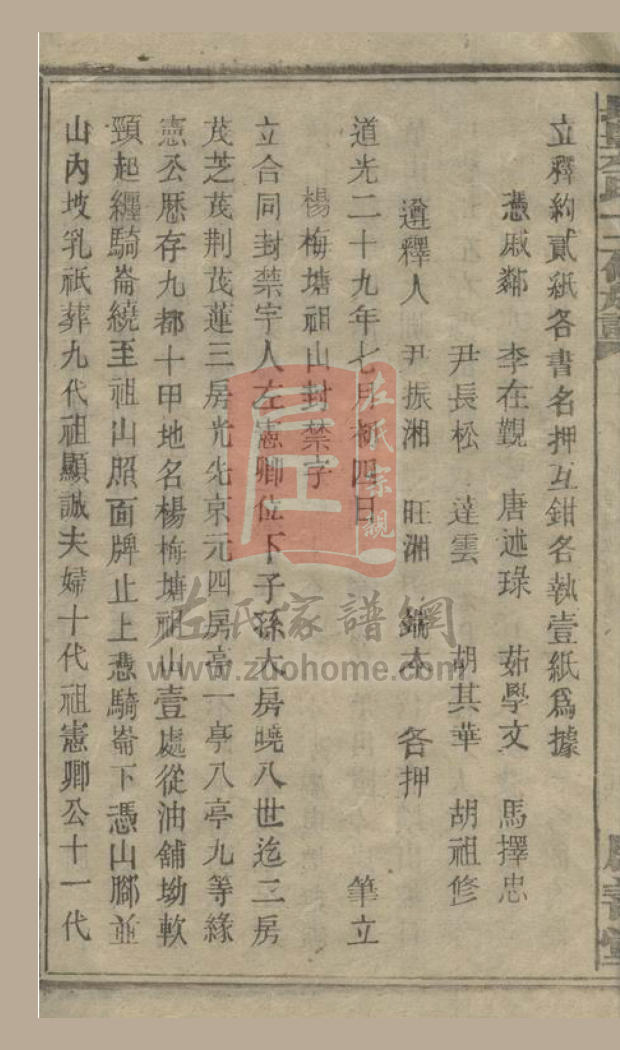 立釋約貳紙各書名押互鉗各執壹紙爲據
憑戚鄰 李在觀 唐述琭 茹學文 馬擇忠
尹長松 達雲 胡其華 胡祖修
遵釋人 尹振湘 旺湘 鏡本 各押
道光二十九年七月初四日 筆立
楊梅塘祖山封禁字
立合同封禁字人左憲卿位下子孫大房曉八世迄三房
茂芝茂荆茂蓮三房光先京元四房高一亭八亭九等緣
憲公歷存九都十甲地名楊梅塘祖山壹處從油舖坳軟
頸起纒騎崙繞至祖山照面牌止上憑騎崙下憑山腳並
山內坡乳祇葬九代祖顯誠夫婦十代祖憲卿公十一代
左氏宗親
左氏家譜網
www.zuohome.com